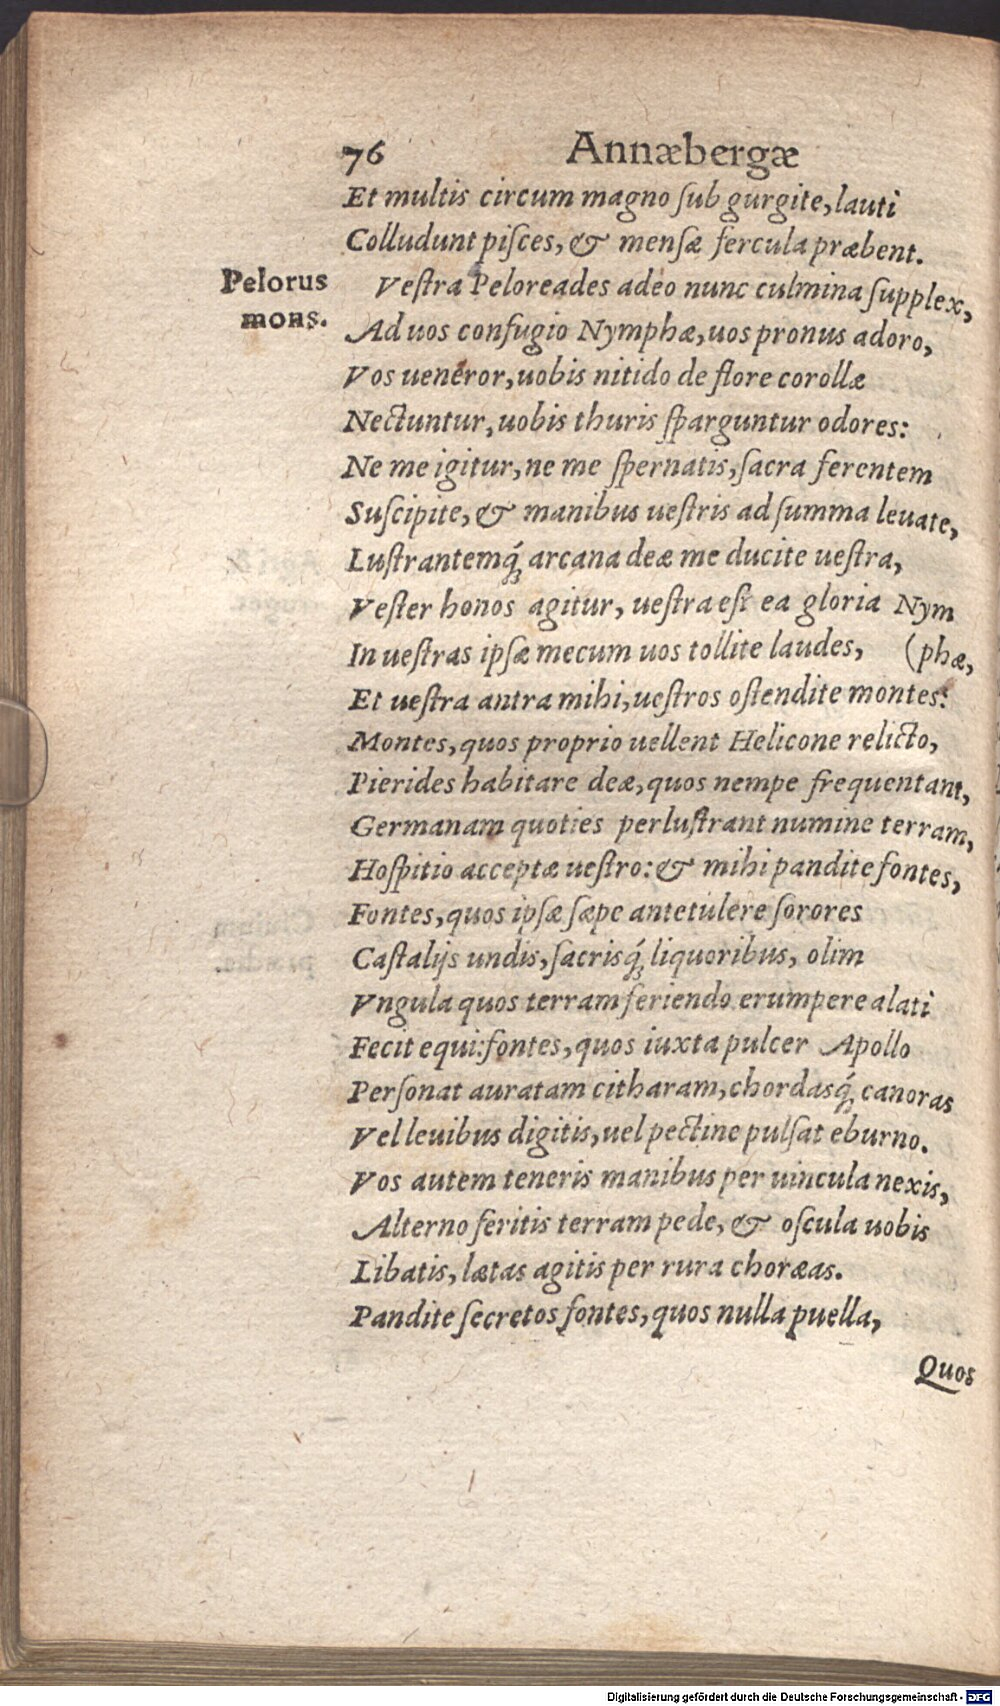 76 Annæbergæ
Et multis circum magno ſub gurgite, lauti
Colludunt piſces, & menſæ fercula præbent.
Pelorus
mons.
Veſtra Peloreades adeo nunc culmina ſupplex,
Ad uos confugio Nymphæ, uos pronus adoro,
Vos ueneror, uobis nitido de flore corollæ
Nectuntur, uobis thuris ſparguntur odores:
Ne me igitur, ne me ſpernatis, ſacra ferentem
Suſcipite, & manibus ueſtris ad ſumma leuate,
Luſtrantemq́; arcana deæ me ducite ueſtra,
Veſter honos agitur, ueſtra eſt ea gloria Nym
In ueſtras ipſæ mecum uos tollite laudes, (phæ,
Et ueſtra antra mihi, ueſtros oſtendite montes:
Montes, quos proprio uellent Helicone relicto,
Pierides habitare deæ, quos nempe frequentant,
Germanam quoties perluſtrant numine terram,
Hoſpitio acceptæ ueſtro: & mihi pandite fontes,
Fontes, quos ipſæ ſæpe antetulere ſorores
Caſtalijs undis, ſacrisq́; liquoribus, olim
Vngula quos terram feriendo erumpere alati
Fecit equi: fontes, quos iuxta pulcer Apollo
Perſonat auratam citharam, chordasq́; canoras
Vel leuibus digitis, uel pectine pulſat eburno.
Vos autem teneris manibus per uincula nexis,
Alterno feritis terram pede, & oſcula uobis
Libatis, lætas agitis per rura choræas.
Pandite ſecretos fontes, quos nulla puella,
Quos
Digitalisierung gefördert durch die Deutsche Forschungsgemeinschaft - DFG